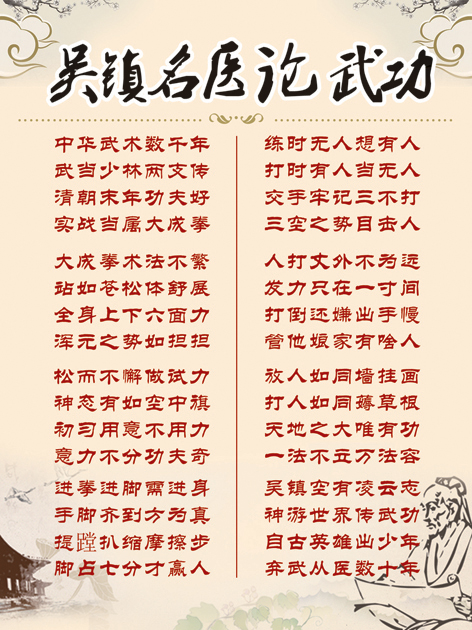 吴镇名医论武功
中华武术数千年
武当少林两支传
清朝末年功夫好
实战当属大成拳
大成拳术法不繁
站如苍松体舒展
全身上下六面力
浑元之势如担担
松而不懈做试力
神态有如空中旗
初习用意不用力
意力不分功夫奇
进拳进脚需进身
手脚进齐到方为真
提蹚扒缩摩擦步
脚占七分才赢人
练时无人想有人
打时有人当无人
交手牢记三不打
三空之势目击人
人打丈外不为远
发力只在一寸间
打倒还嫌出手慢
管他娘家有啥人
放人如同墙挂画
打人如同薅草根
天地之大唯有功
一法不立万法容
吴镇空有凌云志
神游世界传武功
自古英雄出少年
弃武从医数十年